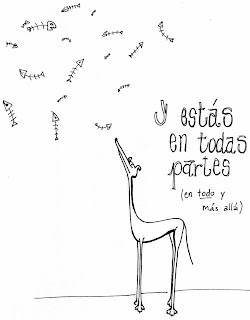 y estás
en todas
partes
(en todo y
más allá)